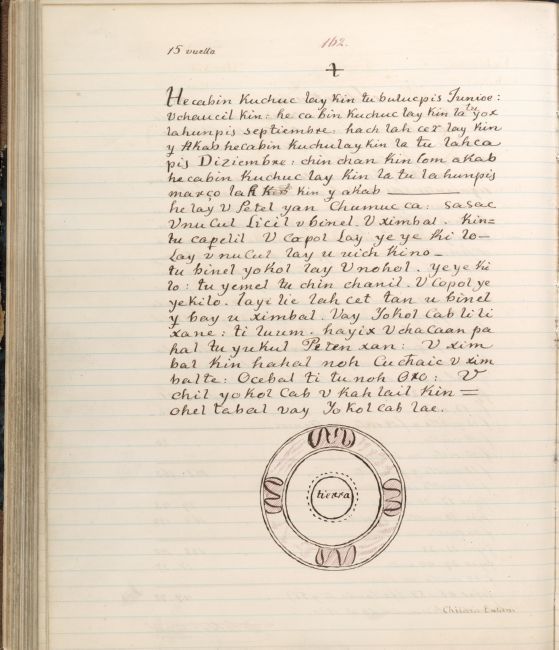 15 vuelta
162.
Hecabin Kuchuc lay Kin tu bulucpis Junioe:
vchaucil Kin: he cabin Kuchuc lay Kin la tu yox
lahunpis septiembre: hach lah cet lay Kin
y Akab hecabin Kuchulay Kin la tu lahca
pis Diziembre: chin chan Kin lom akab
hecabin Kuchuc lay Kin la tu lahunpis
março lah Kin y akab
he lay v Petel yan Chumuc ca: sasac
Vnucul Licil v binel. V ximbal. Kin=
tu capelil V Copol Lay ye ye Ki lo-
Lay v nucul lay u uich Kino-
tu binel yokol lay V nohol. yeye Ki
lo: tu yemel tu chin chanil. V Copol ye
ye Kilo. layi lic lah cet tan u binel
y bay u ximbal. Vay Yokol Cab li li
xane: ti luum. hayix V chacaan pa
hal tu yukul Peten xan: V xim
bal Kin hahal noh Cuchaic v xim
balte: Ocebal ti tu noh Oxo: V
chil yokol Cab v Kahlail Kin=
ohel tabal vay Yokol cab lae.
tierra